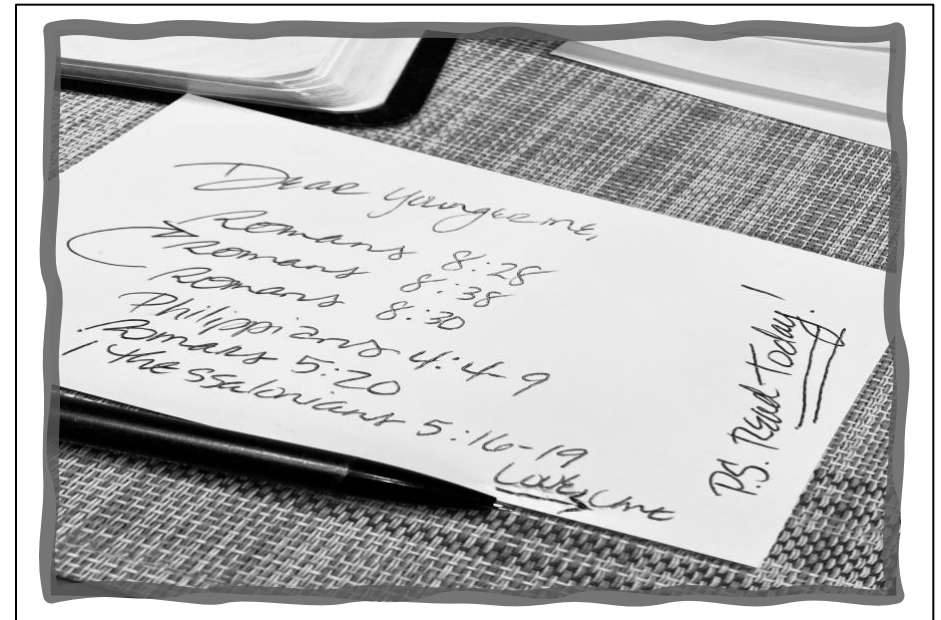 Dear younger me,
Romans 8:28
Romans 8:38
Romans 8:30
Philippians 4:4-9
Romans 5:20
1 Thessalonians 5:16-19
P.S. Read today!